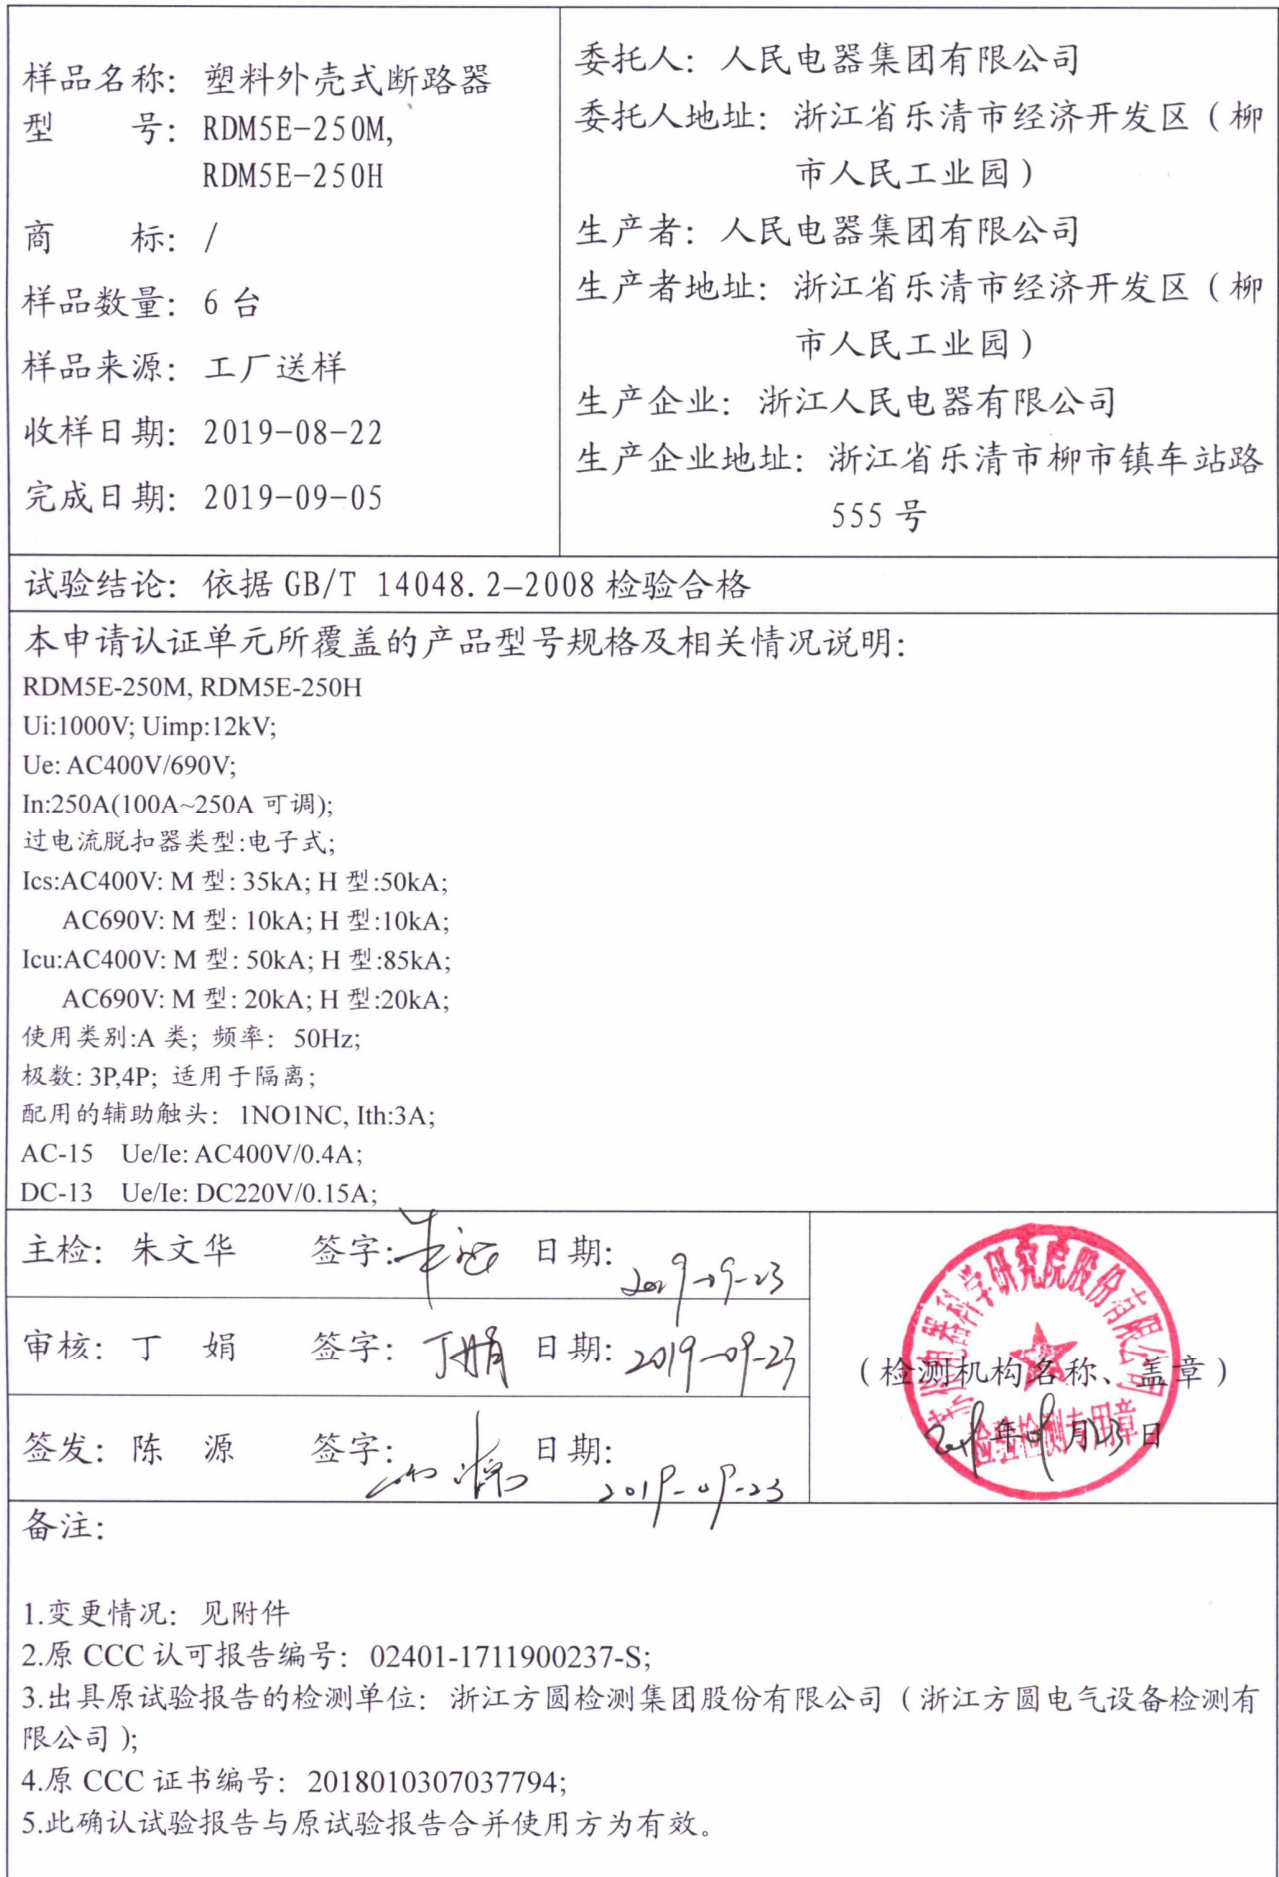 样品名称: 塑料外壳式断路器
型 号: RDM5E-250M,
RDM5E-250H
商 标: /
样品数量: 6 台
样品来源: 工厂送样
收样日期: 2019-08-22
完成日期: 2019-09-05
委托人: 人民电器集团有限公司
委托人地址: 浙江省乐清市经济开发区(柳
市人民工业园)
生产者: 人民电器集团有限公司
生产者地址: 浙江省乐清市经济开发区(柳
市人民工业园)
生产企业: 浙江人民电器有限公司
生产企业地址: 浙江省乐清市柳市镇车站路
555 号
试验结论: 依据 GB/T 14048.2-2008 检验合格
本申请认证单元所覆盖的产品型号规格及相关情况说明:
RDM5E-250M, RDM5E-250H
Ui:1000V; Uimp:12kV;
Ue: AC400V/690V;
In:250A(100A~250A 可调);
过电流脱扣器类型:电子式;
Ics:AC400V: M 型: 35kA; H 型:50kA;
AC690V: M 型: 10kA; H 型:10kA;
Icu:AC400V: M 型: 50kA; H 型:85kA;
AC690V: M 型: 20kA; H 型:20kA;
使用类别:A 类; 频率: 50Hz;
极数: 3P,4P; 适用于隔离;
配用的辅助触头: 1NO1NC, Ith:3A;
AC-15 Ue/Ie: AC400V/0.4A;
DC-13 Ue/Ie: DC220V/0.15A;
主检: 朱文华 签字: 日期: 2019-09-23
审核: 丁 娟 签字: 丁娟 日期: 2019-09-23
签发: 陈 源 签字: 日期: 2019-09-23
苏州电器科学研究院股份有限公司
(检测机构名称、盖章)
检验检测专用章
2019年09月23日
备注:
1.变更情况: 见附件
2.原 CCC 认可报告编号: 02401-1711900237-S;
3.出具原试验报告的检测单位: 浙江方圆检测集团股份有限公司(浙江方圆电气设备检测有
限公司);
4.原 CCC 证书编号: 2018010307037794;
5.此确认试验报告与原试验报告合并使用方为有效。